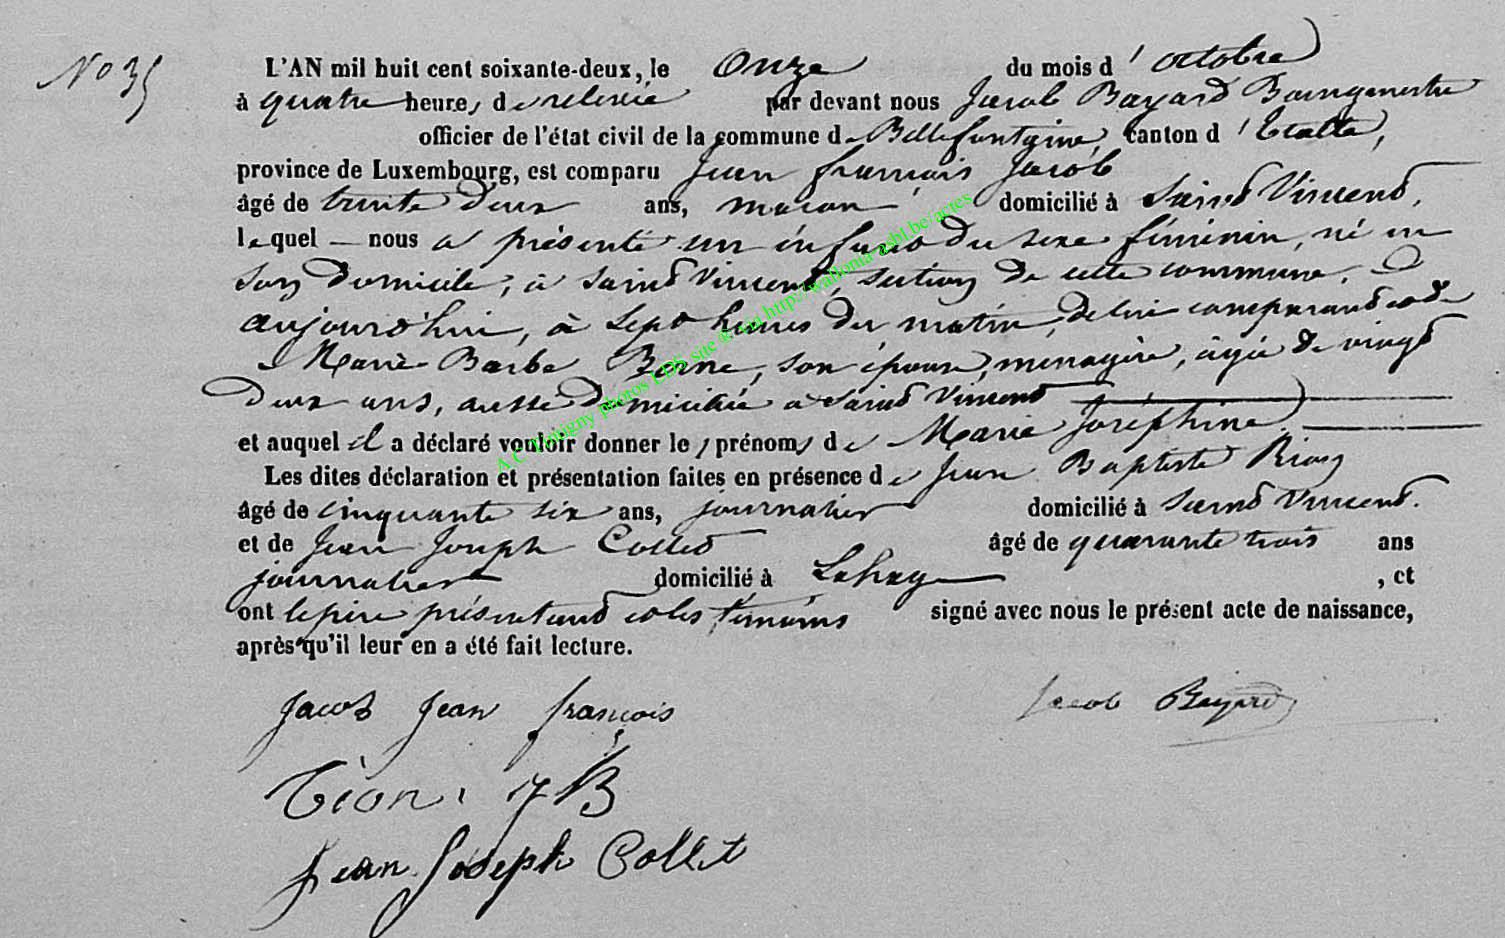 N° 35
L'AN mil huit cent soixante-deux, le Onze du mois d'octobre
à quatre heures de relevée par devant nous Jacob Bayard Bourgmestre
officier de l'état civil de la commune de Bellefontaine, canton d'Etalle,
province de Luxembourg, est comparu Jean françois Jacob
âgé de trente deux ans, maçon, domicilié à Saind Vincend,
lequel — nous a présenté un enfand du sexe féminin, né en
son domicile, à saind Vincend, section de cette commune, 
aujourd'hui, à Sept heures du matin, de lui comparand et de
Marie Barbe, son épouse, ménagère, âgée de vingd
deux ans, aussi domiciliée à Saind Vincend
et auquel il a déclaré vouloir donner les prénoms de Marie Joséphine.
Les dites déclaration et présentation faites en présence de Jean Baptiste
âgé de cinquante six ans, journalier domicilié à Saind Vincend.
et de Jean Joseph Colled âgé de quarante trois ans
journalier domicilié à Lahage, et
ont le père présentand et les témoins signé avec nous le présent acte de naissance,
après qu'il leur en a été fait lecture.
Jacob Jean françois
Jacob Bayard
JB
Jean Joseph Collet
A.C. Tintigny photos LDS site © sur http://wallonia-asbl.be/actes